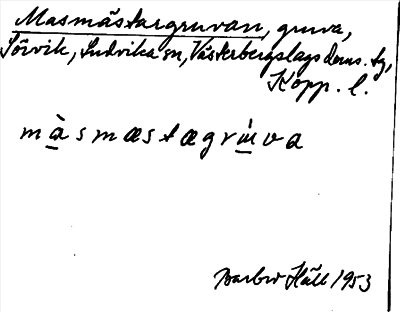 Masmästargruvan, gruva,
Sörvik, Ludvika sn, Västerbergslags doms. tg,
Kopp. l.
màsmæstægrùva
Barbro Häll 1953